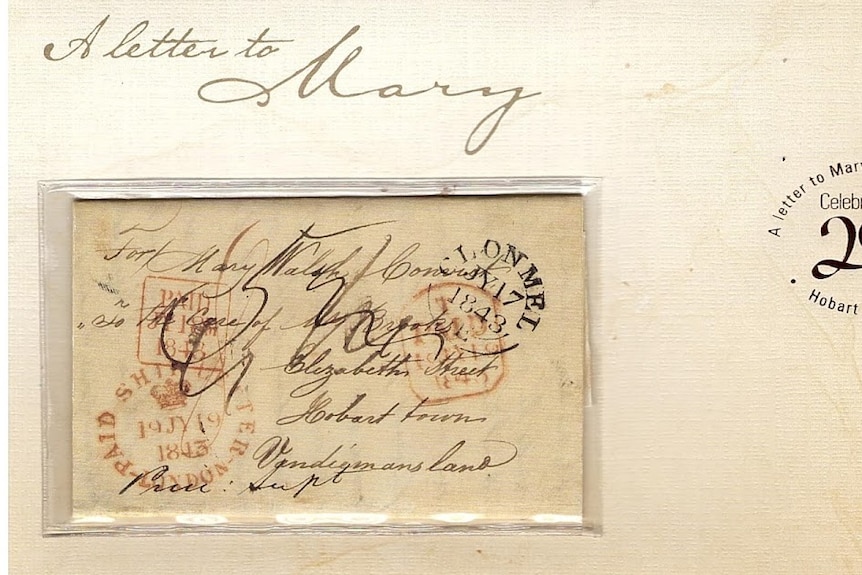 A letter to
Mary
For Mary Walsh Convict
"To the Care of Mr Brooks
Elizabeth Street
Hobart town
Vandiemansland
CLONMEL
JY 17
1843
PAID
1843
PAID SHIP LETTER LONDON
19 JY 19
1843
A letter to Mary
Celebr
Hobart